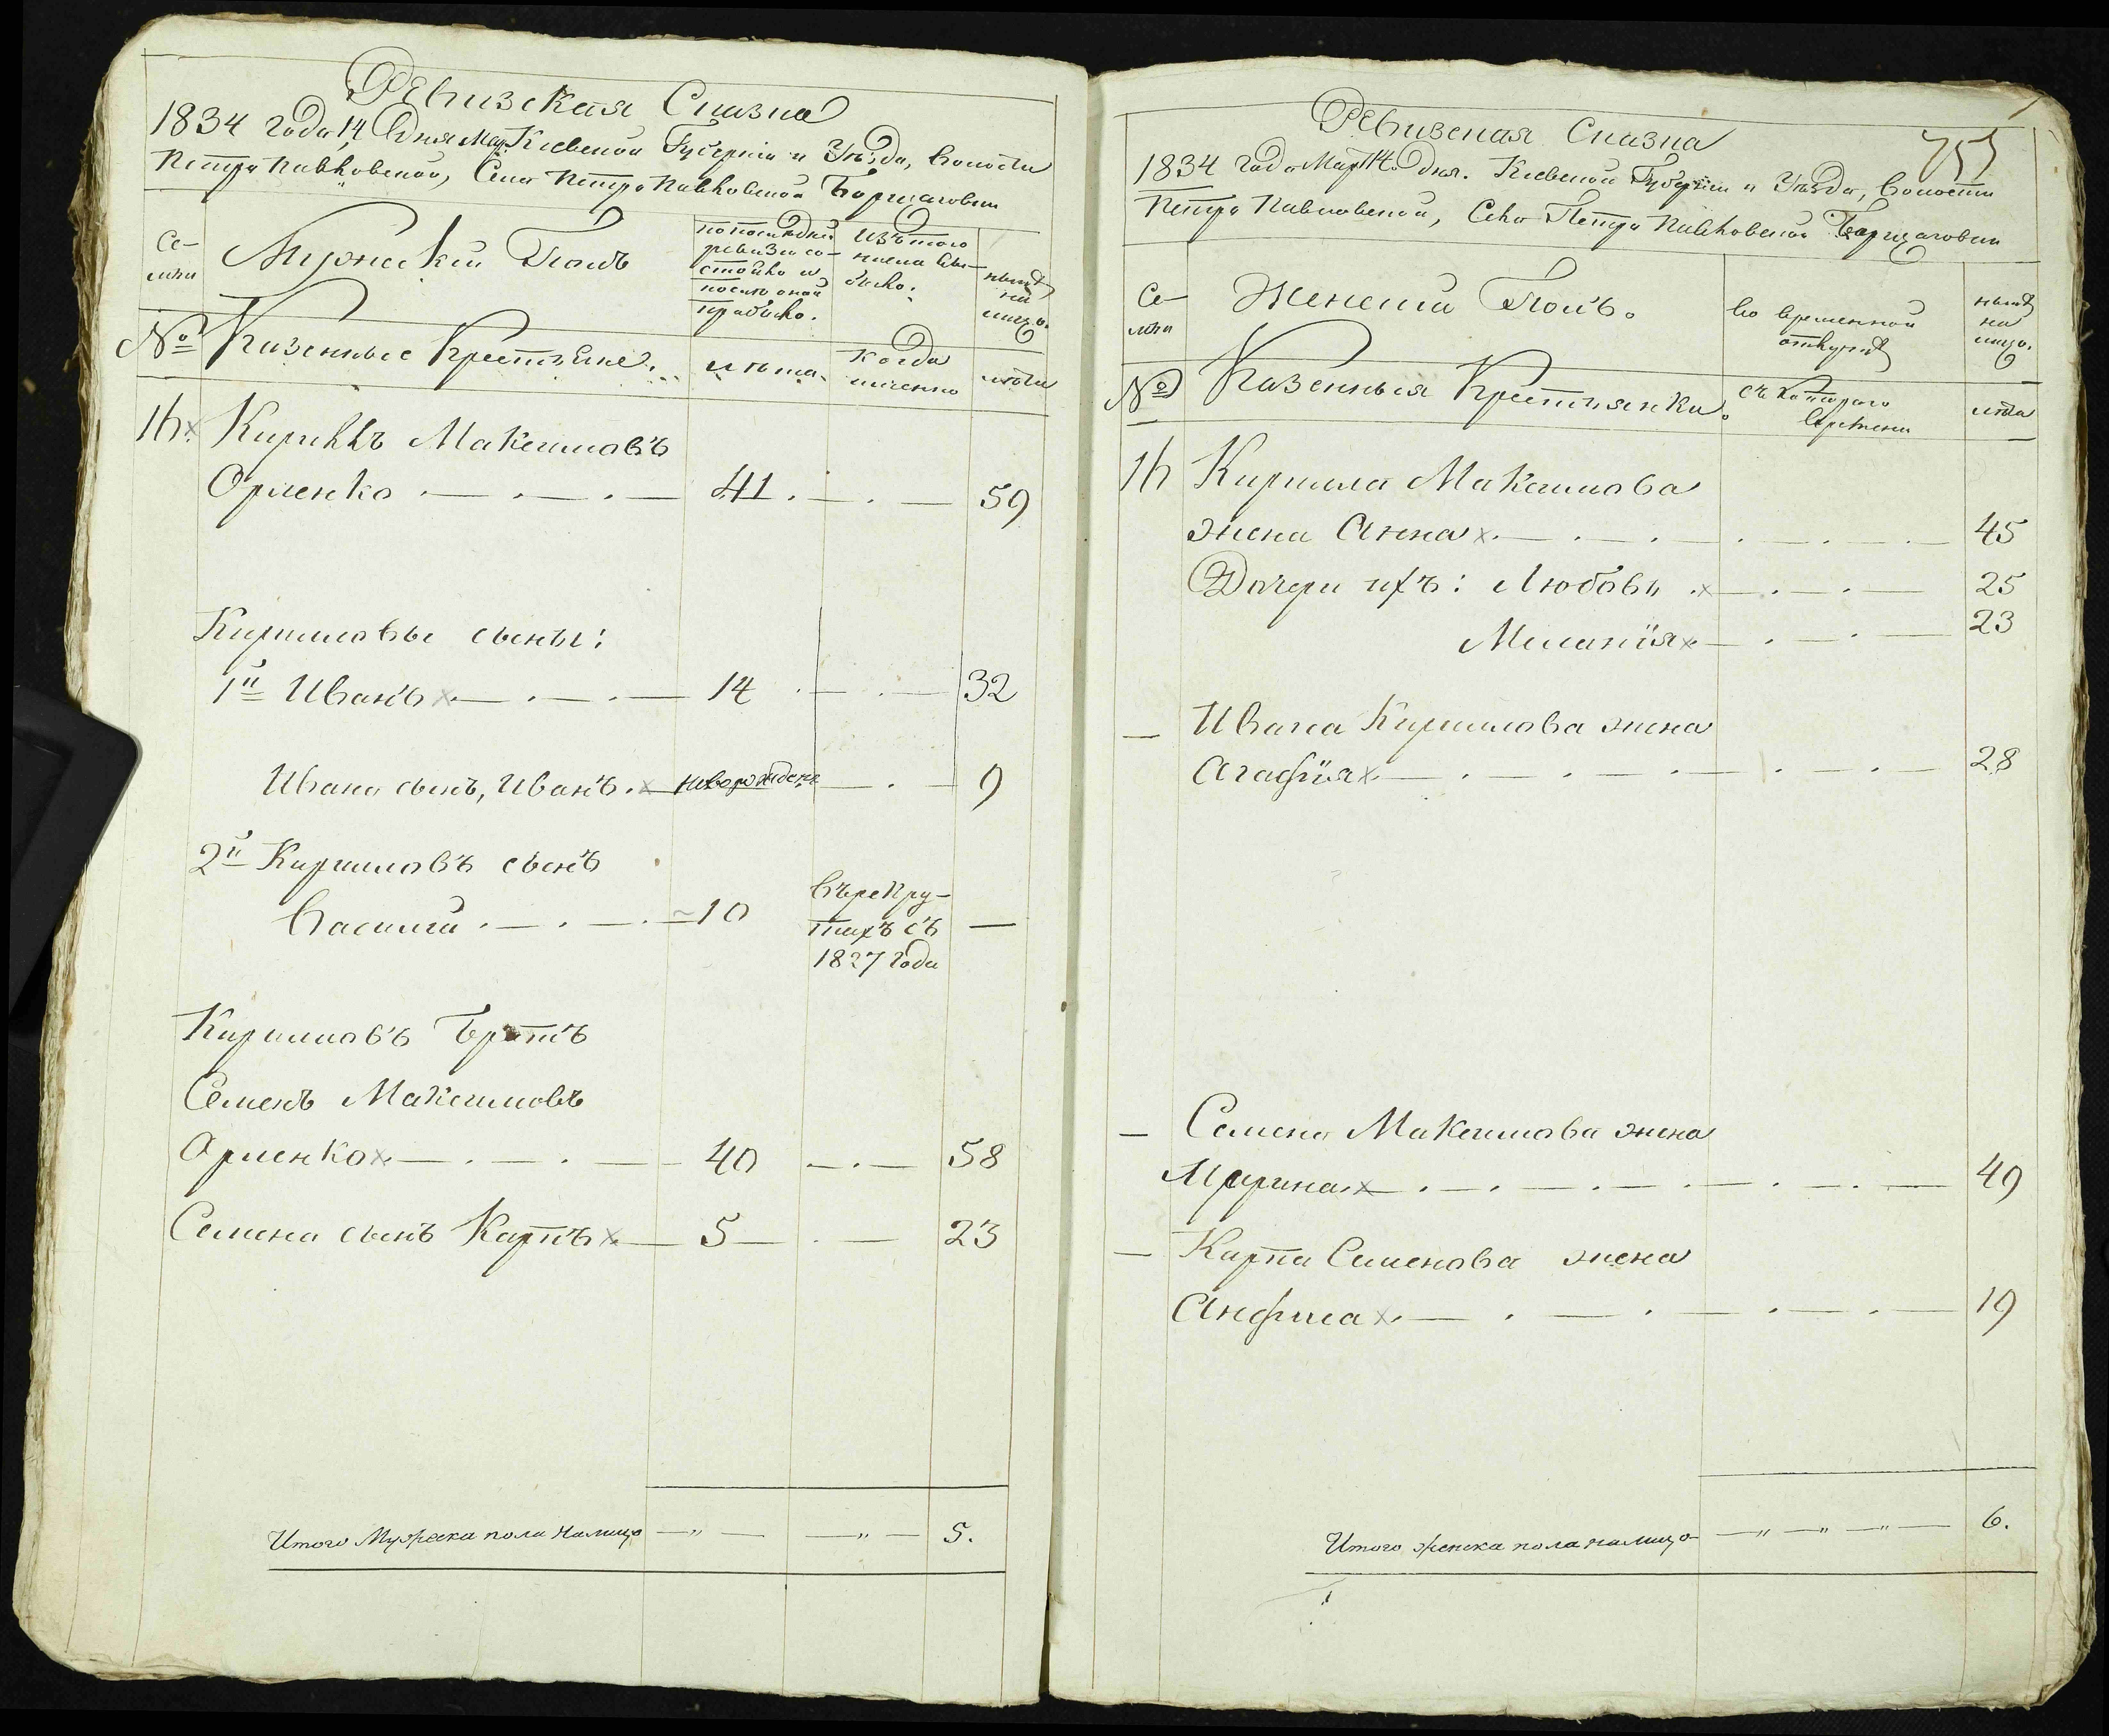 Ревизская Сказка
1834 года 14 Дня Мар. Киевской Губернии и Уѣзда, Волости
Петро Павловской, Села Петро Павловской Борщаговки
Се-
мьи
Мужеский Полъ
по последней
ревизии со-
стояло и
после оной
прибыло.
Изъ того
числа вы-
было.
нынѣ
на
лицо.
№
Казенные Крестьяне.
лѣта
когда
именно
лѣта
16.
Кириллъ Максимовъ
Орленко 41. 59
Кириловы сыны:
1й Иванъ 14 32
Ивана сынъ, Иванъ. новорожден. 9
2й Кириловъ сынъ
Василий 10
въ рекру-
тахъ съ
1827 года
Кириловъ Братъ
Семенъ Максимовъ
Орленко 40 58
Семена сынъ Карпъ 5 23
Итого Мужеска пола налицо 5.
Ревизская Сказка
1834 года Мар. 14 дня. Киевской Губернии и Уѣзда, Волости
Петро Павловской, Села Петро Павловской Борщаговки
Се-
мьи
Женский Полъ.
Во временной
отлучкѣ
нынѣ
на
лицо.
№
Казенныя Крестьянки.
съ которого
времени
лѣта
16 Кирилла Максимова
жена Анна 45
Дочери ихъ: Любовь 25
Меланія 23
Ивана Кирилова жена
Агафія 28
Семена Максимова жена
Марина 49
Карпа Семенова жена
Анфиса 19
Итого женска пола налицо 6.